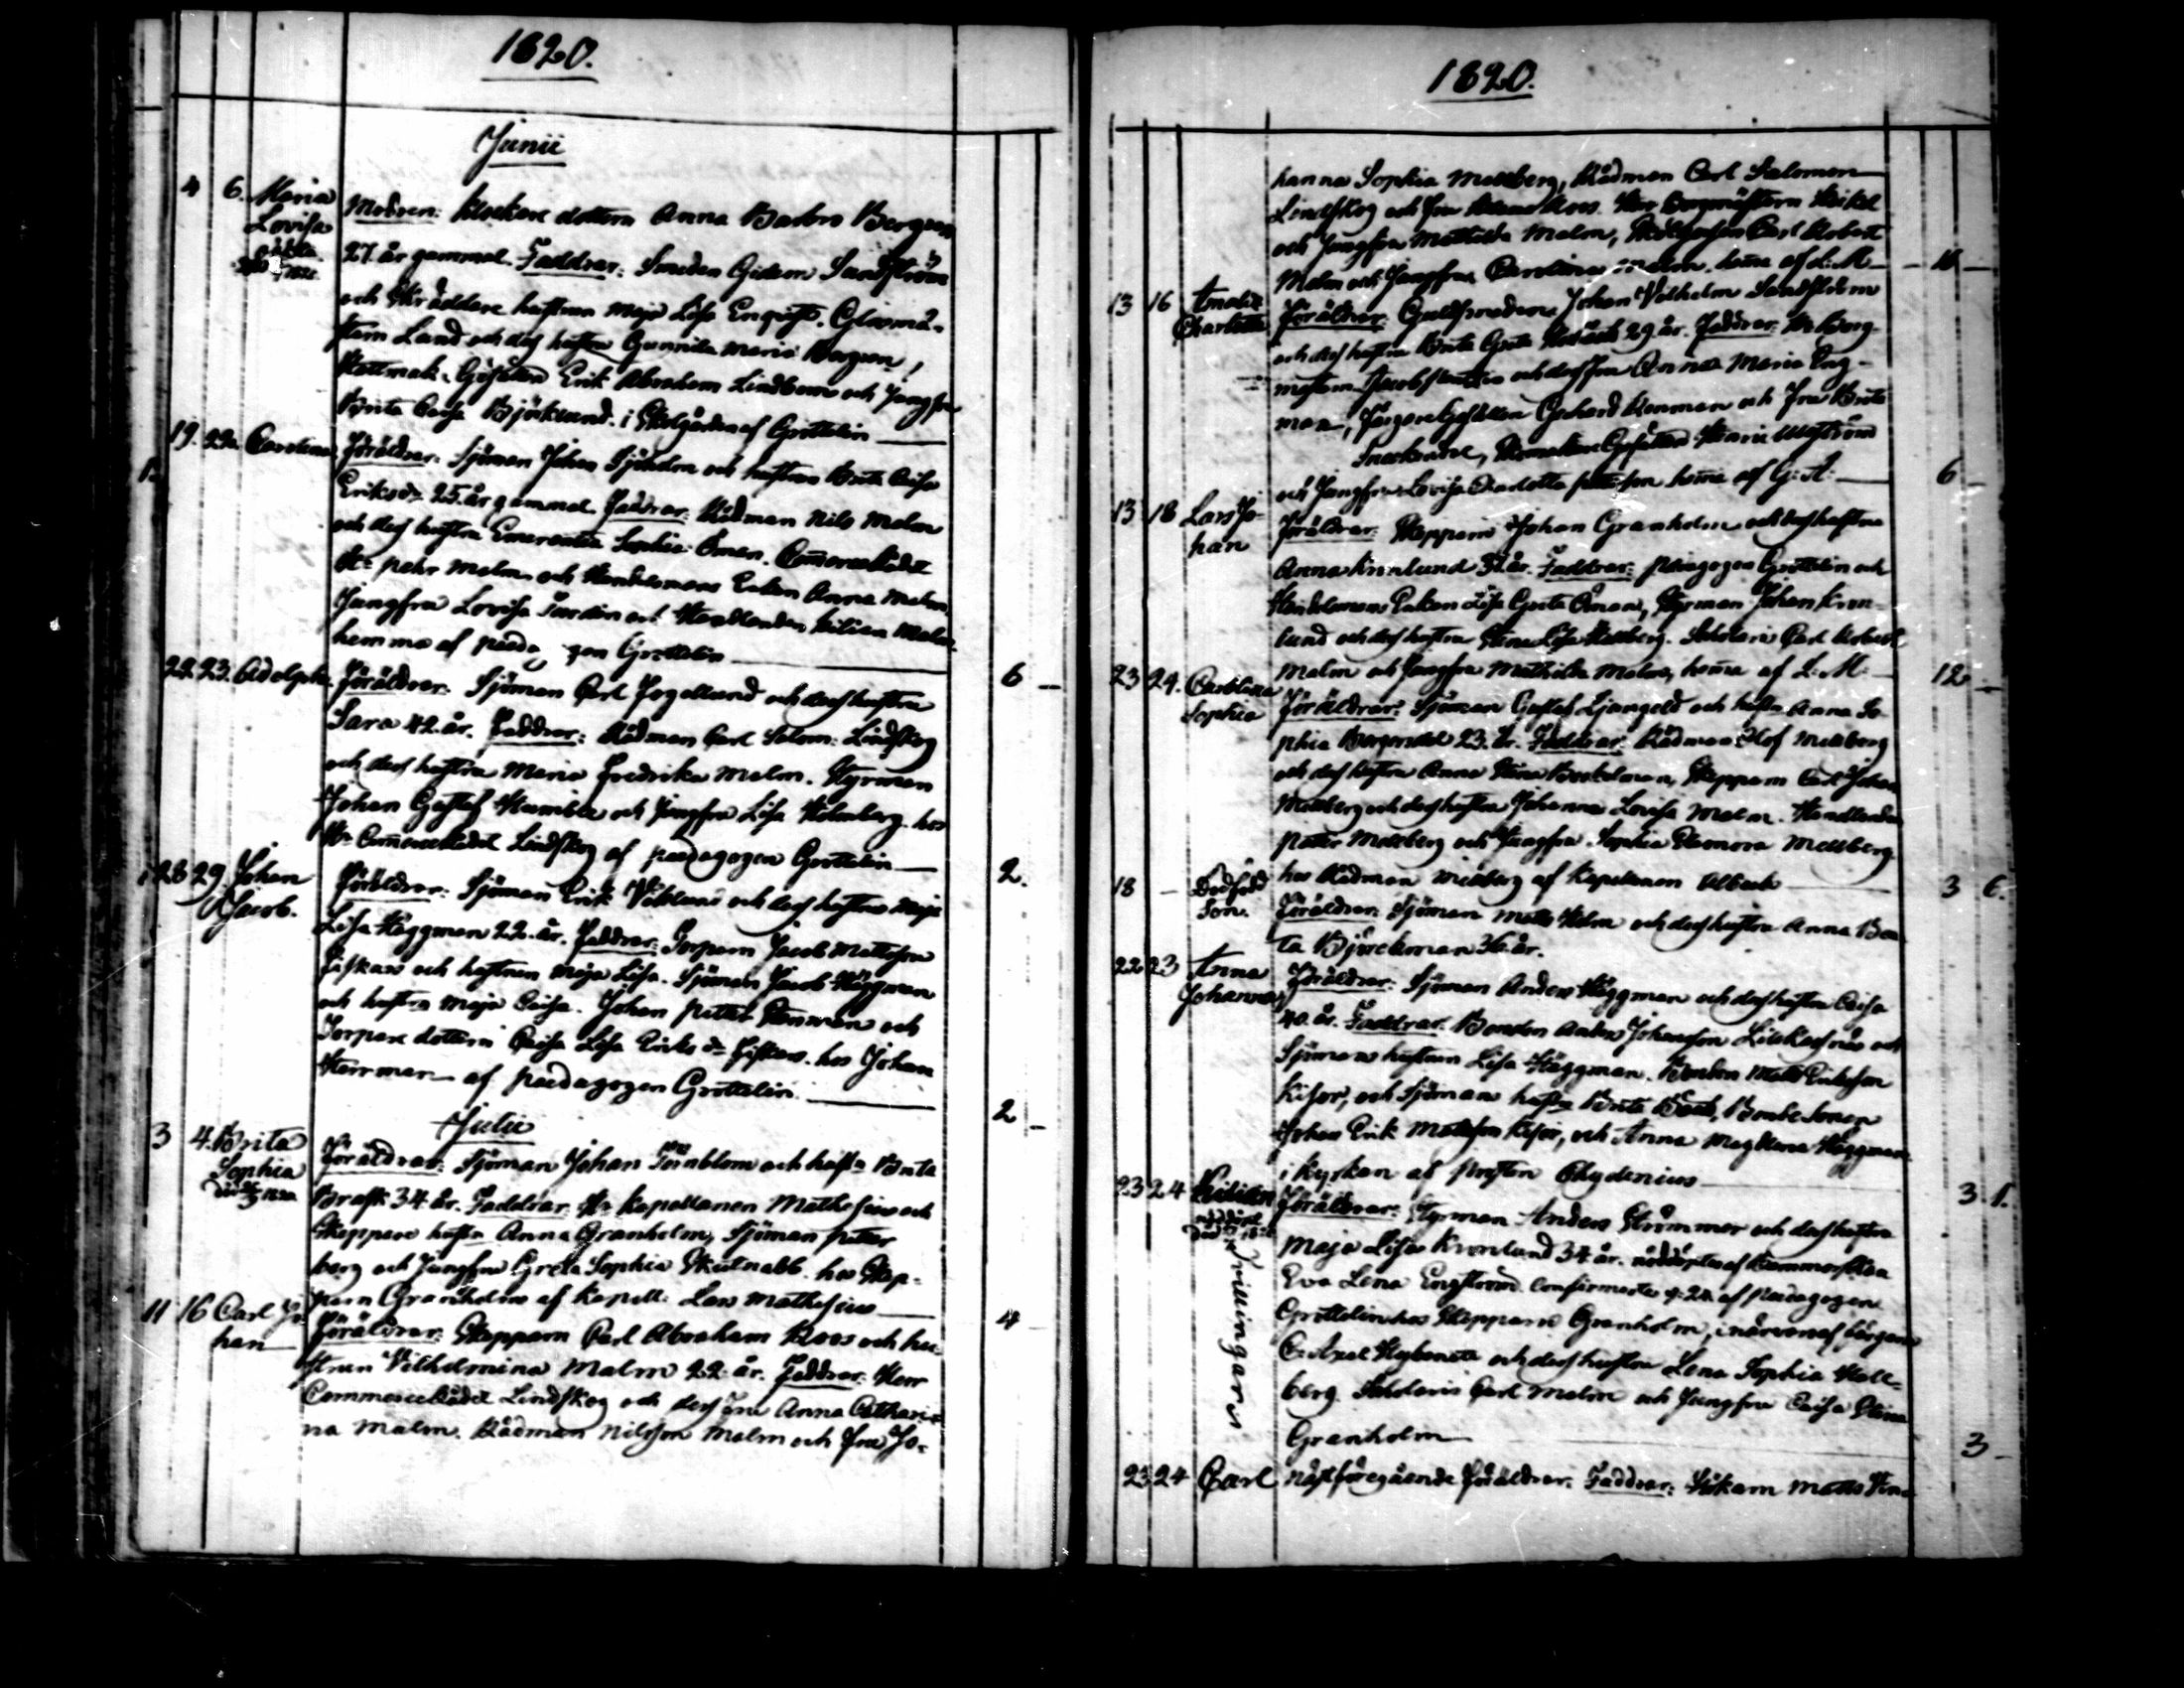 1820.
Junii
4 6. Maria Modren: klockare dottern Anna Barbro Bergman
Lovisa 27. år gammal. Faddrar: Smeden Gideon Sundström
och Skräddare hustrun Maja Lisa Enqvist. Glasmä-
stern Lund och des hustru Gunnila Maria Bergman,
Hattmak. Gesällen Erik Abraham Lindbom och Jungfru
Brita Caisa Björklund. i Skolgården af Grottelin
19. 22. Carolina Föräldrar: Sjöman Johan Sjöholm och hustrun Brita Caisa
Eriksdr 25. år gammal. Faddrar: Rådman Nils Malm
och des hustru Emerentia Sophia Öman. Commerce Rådet
Hr Pehr Malm och Handelsmans Enkan Anna Malm
Jungfru Lovisa och Handlanden Kilian Malm
hemma af pædagogen Grottelin
6 -
22. 23. Adolph. Föräldrar: Sjöman Carl Fogellund och des hustru
Sara 42. år. Faddrar: Rådman Carl Salom: Lindskog
och des hustru Maria Fredrika Malm. Styrman
Johan Gustaf Humble och Jungfru Lisa Holmberg. hos
Hr Commerce Rådet Lindskog af pædagogen Grottelin
2.
28 29 Johan Föräldrar: Sjöman Erik Viklund och des hustru Maja
Jacob. Lisa Häggman 22. år. Faddrar: Torparn Jacob Mattsson
Fiskars och hustrun Maja Lisa. Sjöman Jacob Häggman
och hustru Maja Caisa. Johan Petter och
Torpare dottern Caisa Lisa Eriksdr Fiskars. hos Johan
af pædagogen Grottelin
2 -
Julii
3 4. Brita Föräldrar: Sjöman Johan Törnblom och hustr Brita
Sophia Brask 34 år. Faddrar: Hr Kapellanen Mathesius och
Skeppare hustr Anna Granholm, Sjöman Petter
berg och Jungfru Greta Sophia Skutnabb. hos Skep-
parn Granholm af Kapell: Lars Mathesius
4
11 16 Carl Jo- Föräldrar: Skepparn Carl Abraham Roos och hu-
han strun Vilhelmina Malm 22. år. Faddrar: Herr
Commerce Rådet Lindskog och des Fru Anna Cathari-
na Malm. Rådman Nilsson Malm och Fru Jo-
1820.
hanna Sophia Mellberg, Rådman Carl Salomon
Lindskog och Fru Roos. Herr Borgmästern
och Jungfru Mathilda Malm, Carl Robert
Malm och Jungfru Carolina Malm. home af L: M
13 16 Amalia Föräldrar: Guldsmeden Johan Vilhelm Sundström
Charlotta och des hustru Brita Greta 29 år. Faddrar: Hr Borg-
mästarn och des Fru Anna Maria Eng-
man, Färgare Gesällen Gerhard och Fru Brita
och Jungfru Lovisa Charlotta home af G: A:
6
13 18 Lars Jo- Föräldrar: Skepparn Johan Granholm och des hustru
han Anna Kronlund 32 år. Faddrar: Pædagogen Grottelin och
Handelsmans Enkan Lisa Greta Öman, Styrman Johan Kron-
lund och des hustru Lisa Hallberg. Scholaris Carl Robert
Malm och Jungfru Mathilda Malm, home af L. M.
12 -
23 24. Carolina Föräldrar: Sjöman Gustaf Ljungold och hustr Anna So-
Sophia phia 23. år. Faddrar: Rådman Olof Mellberg
och des hustru Anna Stina Backman, Skepparn Carl Johan
Mellberg och des hustru Johanna Lovisa Malm. Handlanden
Petter Mellberg och Jungfru Sophia Eleonora Mellberg
hos Rådman Mellberg af Kapellanen
3 6.
18 - Dödfödd Föräldrar: Sjöman Matts Holm och des hustru Anna Bea-
Son. ta Björckman 36 år.
22 23 Anna Föräldrar: Sjöman Anders Häggman och des hustru Caisa
Johanna 40 år. Faddrar: Bonden Anders Johansson och
Sjömans hustrun Lisa Häggman. Bonden Matts Eriksson
Kisor, och Sjömans hustru Brita Bonde Sonen
Johan Erik Mattsson Kisor, och Anna Magdalena Häggman
i kyrkan af prosten Chydenius
3 1.
23 24 Kilian Föräldrar: Styrman Anders Strömmer och des hustru
nöddöpt Maja Lisa Kronlund 34 år. nöddöptes af Barnmorskan
Eva Lena Engström. Confirmerts d. 24 af Pædagogen
Grottelin hos Skepparn Granholm, i närvaro af Färgarn
C. Axel och des hustru Lena Sophia Hall-
berg. Scholaris Carl Malm och Jungfru Caisa Stina
Granholm
3 -
Tvillingarne
23 24 Carl Nästföregående Föräldrar. Faddrar: Matts